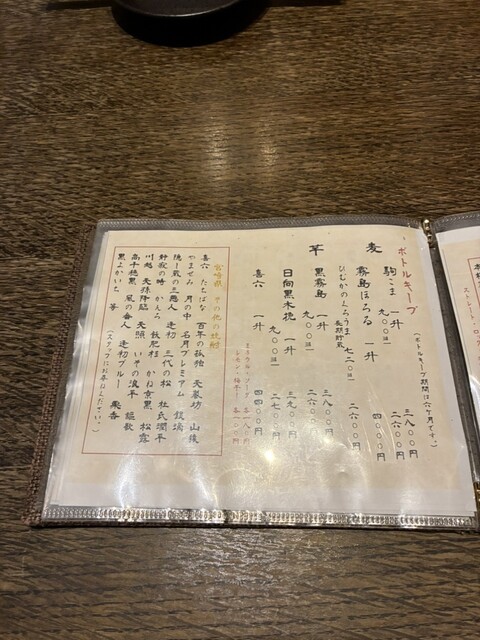 ボトルキープ
(ボトルキープ期間は六ケ月です。)
麦
駒こま 一升 三八〇〇円
九〇〇ml 二六〇〇円
霧島ほろる 一升 四〇〇〇円
ひむかのくろうま 七二〇ml 二六〇〇円
長期貯蔵
芋
黒霧島 一升 三八〇〇円
九〇〇ml 二六〇〇円
日向黒木挽 一升 三九〇〇円
九〇〇ml 二七〇〇円
喜六 一升 四四〇〇円
ミネラル・ソーダ 各一八〇円
レモン・梅干し 各一〇〇円
宮崎県 その他の焼酎
喜六 たちばな 百年の孤独 天孫坊 山猿
やませみ 月の中 名月プレミアム 鏡洲
隠し蔵の三悪人 逢初 三代の松 杜氏潤平
野寂の時 かんろ 飫肥杉 かね京黒 松露
川越 天孫降臨 天照 いその波平
高千穂黒 風の番人 逢初ブルー 謳歌
黒よかいち 等 (スタッフにお尋ねください) 飛香
ストレート・ロッ